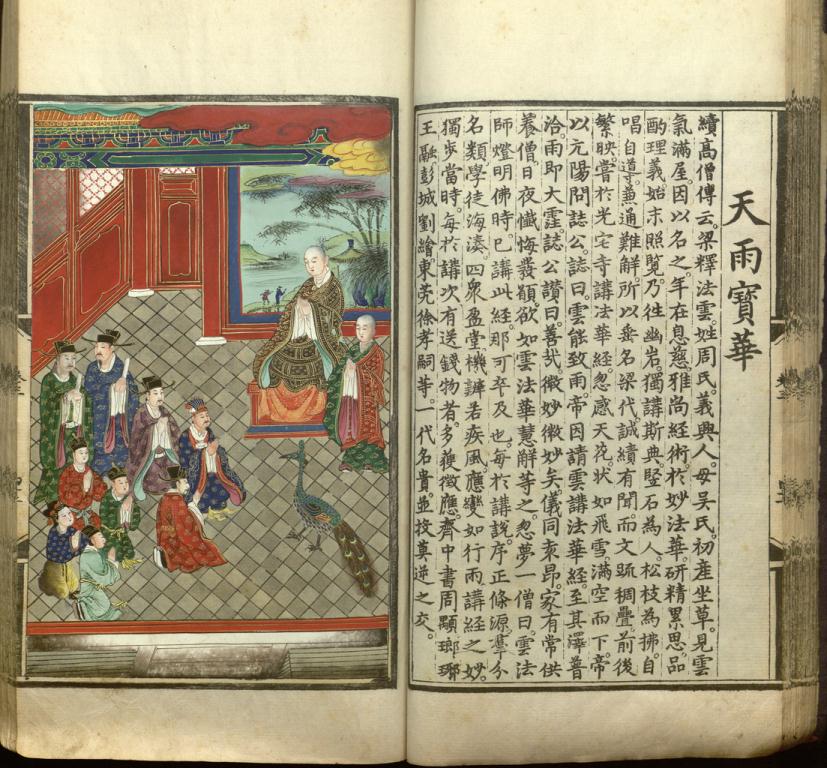 天雨寶華
續高僧傳云。梁釋法雲。姓周氏。義興人。母吳氏。初產坐草。見雲
氣滿屋。因以名之。年在息慈。雅尚經術。於妙法華。研精累思。品
酌理義。始末照覽。乃往幽岩。獨講斯典。竪石為人。松枝為拂。自
唱自導。兼通難解。所以垂名梁代。誠續有聞。而文疏稠疊。前後
繁映。嘗於光宅寺講法華經。忽感天花。狀如飛雪。滿空而下。帝
以亢陽問誌公。誌曰。雲能致雨。帝因請雲講法華經。至其澤普
洽。雨即大霔。誌公讚曰。善哉微妙微妙矣。儀同袁昂。家有常供
養僧。日夜懺悔。發願欲如雲法華慧解等之。忽夢一僧曰。雲法
師燈明佛時。已講此經。那可卒及也。每於講說。序正條源。羣分
名類。學徒海湊。四眾盈堂。機辯若疾風。應變如行雨。講經之妙。
獨步當時。每於講次有送錢物者。多獲徵應。齊中書周顒。瑯琊
王融。彭城劉繪。東莞徐孝嗣等。一代名貴。並投莫逆之交。